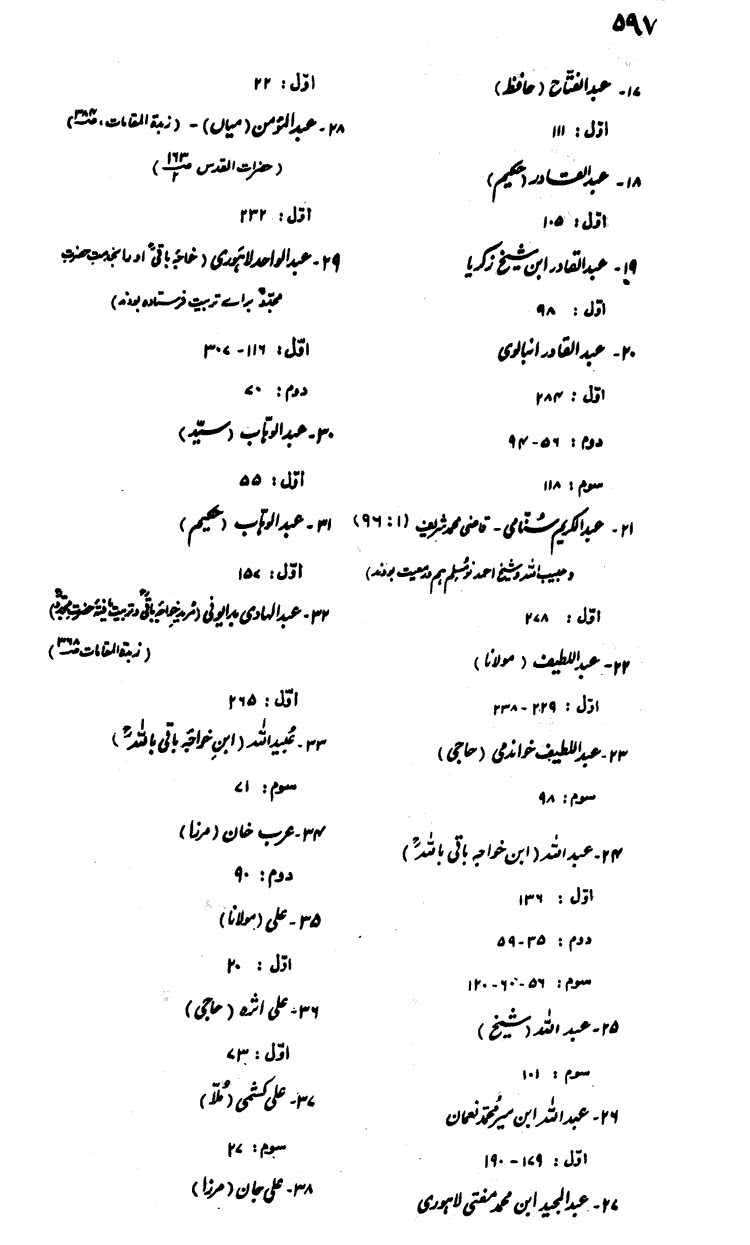 ۵۹۷
۱۷- عبدالفتّاح (حافظ)
اوّل: ۱۱۱
۱۸- عبدالقادر (حکیم)
اوّل: ۱۰۵
۱۹- عبدالقادر ابن شیخ زکریا
اوّل: ۹۸
۲۰- عبدالقادر انبالوی
اوّل: ۲۸۴
دوم: ۵۶-۹۴
سوم: ۱۱۸
۲۱- عبدالکریم سُنّامی - قاضی محمد شریف (۹۶:۱)
و حبیب اللہ و شیخ احمد نومُسلم ہم در معیت بودند)
اوّل: ۲۷۸
۲۲- عبداللطیف (مولانا)
اوّل: ۲۲۹-۲۳۸
۲۳- عبداللطیف خوانرمی (حاجی)
سوم: ۹۸
۲۴- عبداللہ (ابن خواجہ باقی باللہؒ)
اوّل: ۱۳۶
دوم: ۳۵-۵۹
سوم: ۵۶-۶۰-۱۲۰
۲۵- عبداللہ (شیخ)
سوم: ۱۰۱
۲۶- عبداللہ ابن میر محمّد نعمان
اوّل: ۱۷۹-۱۹۰
۲۷- عبدالمجید ابن محمد مفتی لاہوری
اوّل: ۲۲
۲۸- عبدالمؤمن (میاں) - (زبدۃ المقامات، ص ۳۸۴)
(حضرات القدس ص ۱۶۳/۲)
اوّل: ۲۳۲
۲۹- عبدالواحد لاہوری (خواجہ باقیؒ او را بخدمت حضرت
مجدّدؒ برائے تربیت فرستادہ بودند)
اوّل: ۱۱۶-۳۰۷
دوم: ۷۰
۳۰- عبدالوہّاب (سیّد)
اوّل: ۵۵
۳۱- عبدالوہّاب (حکیم)
اوّل: ۱۵۷
۳۲- عبدالہادی بدایونی (مرید خواجہ باقیؒ و تربیت یافتۂ حضرت مجدّدؒ)
(زبدۃ المقامات ص ۳۶۸)
اوّل: ۲۶۵
۳۳- عُبیداللہ (ابنِ خواجہ باقی باللہؒ)
سوم: ۷۱
۳۴- عرب خان (مرزا)
دوم: ۹۰
۳۵- علی (مولانا)
اوّل: ۲۰
۳۶- علی اثرہ (حاجی)
اوّل: ۷۳
۳۷- علی کشمی (مُلّا)
سوم: ۲۷
۳۸- علی جان (مرزا)